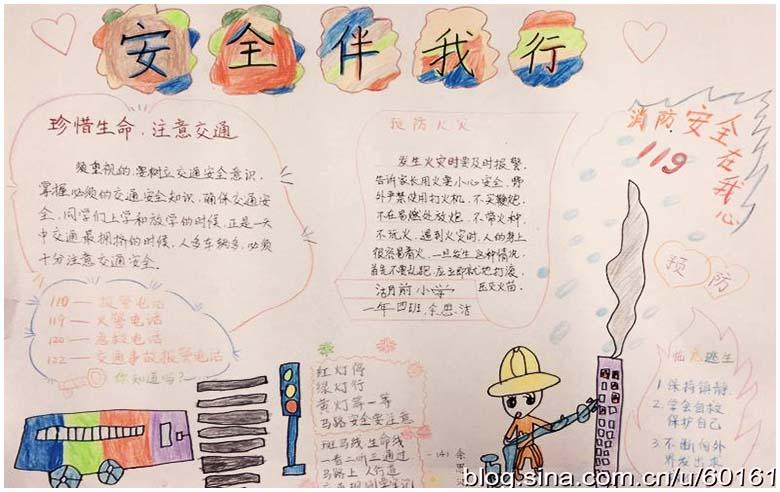 安全伴我行
珍惜生命，注意交通
须重视的，要树立交通安全意识，
掌握必须的交通安全知识，确保交通安
全，同学们上学和放学的时候，正是一天
中交通最拥挤的时候，人多车辆多，必须
十分注意交通安全。
110 — 报警电话
119 — 火警电话
120 — 急救电话
122 — 交通事故报警电话
你知道吗？
预防火灾
发生火灾时要及时报警，
告诉家长用火要小心安全，野
外严禁使用打火机，不买鞭炮，
不在易燃处放炮，不带火种，
不玩火，遇到火灾时，人的身上
很容易着火，一旦发生这种情况，
首先不要乱跑，应立即就地打滚，
压灭火苗。
湖前小学
一年四班，余思洁
消防安全在我心
119
预防
红灯停
绿灯行
黄灯等一等
马路安全要注意
斑马线生命线
一看二听三通过
马路上人行道
(4) 余
思洁
逃生
1、保持镇静
2、学会自救
保护自己
3、不断向外
界发出求
blog.sina.com.cn/u/60161